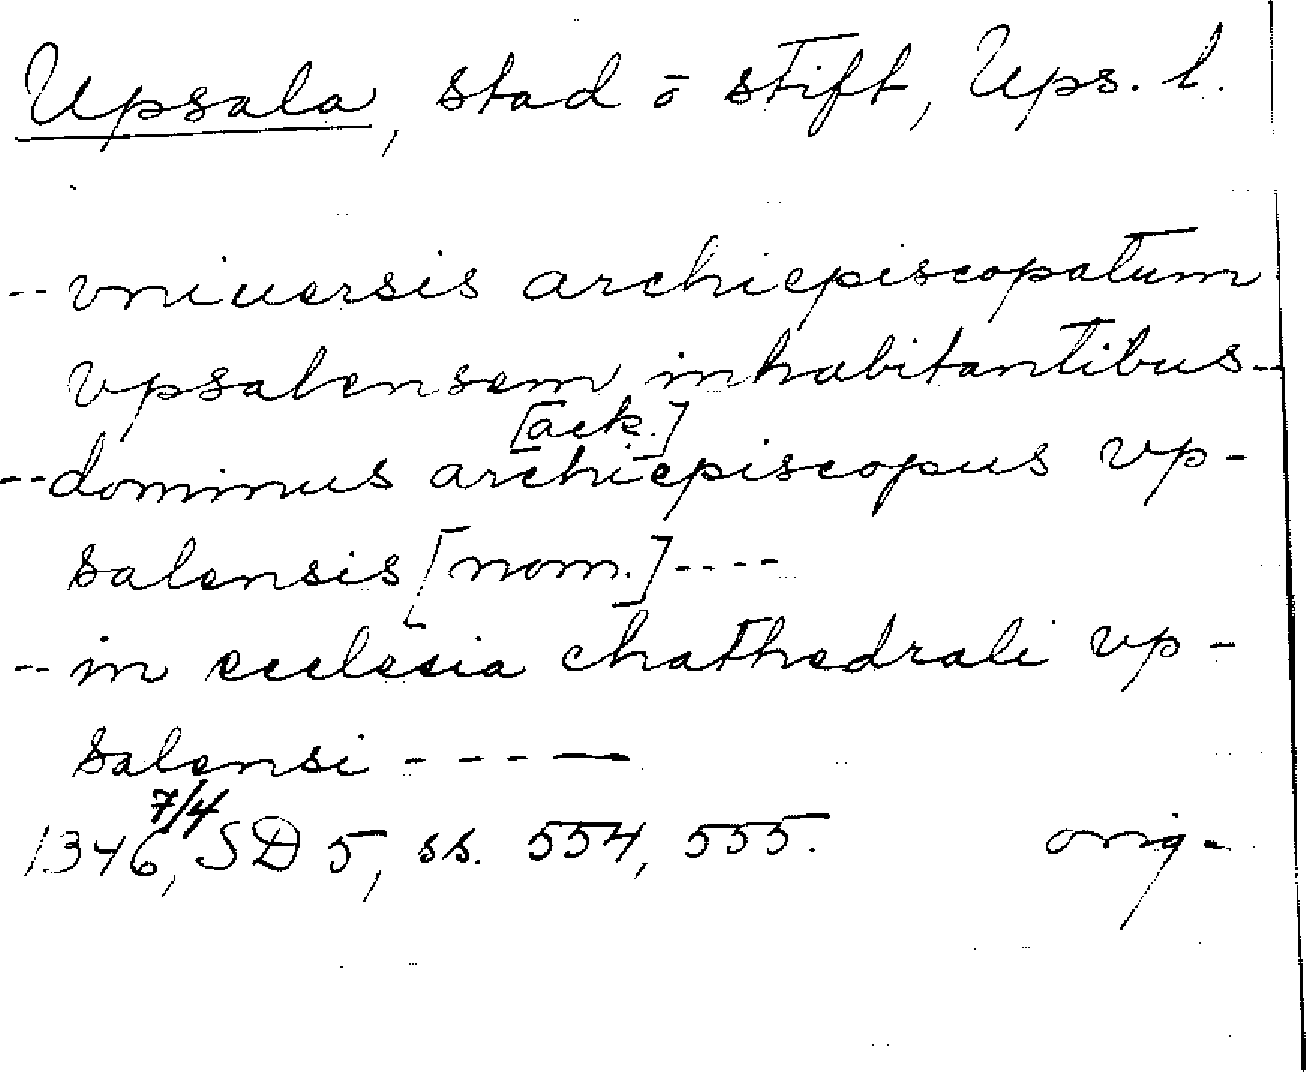 Upsala, stad o stift, Ups. l.
-- vniuersis archiepiscopatum
vpsalensem inhabitantibus --
[ack.]
-- dominus archiepiscopus vp-
salensis [nom.] ----
-- in ecclesia chathedrali vp-
salensi ----
7/4
1346, SD 5, ss. 554, 555. orig.